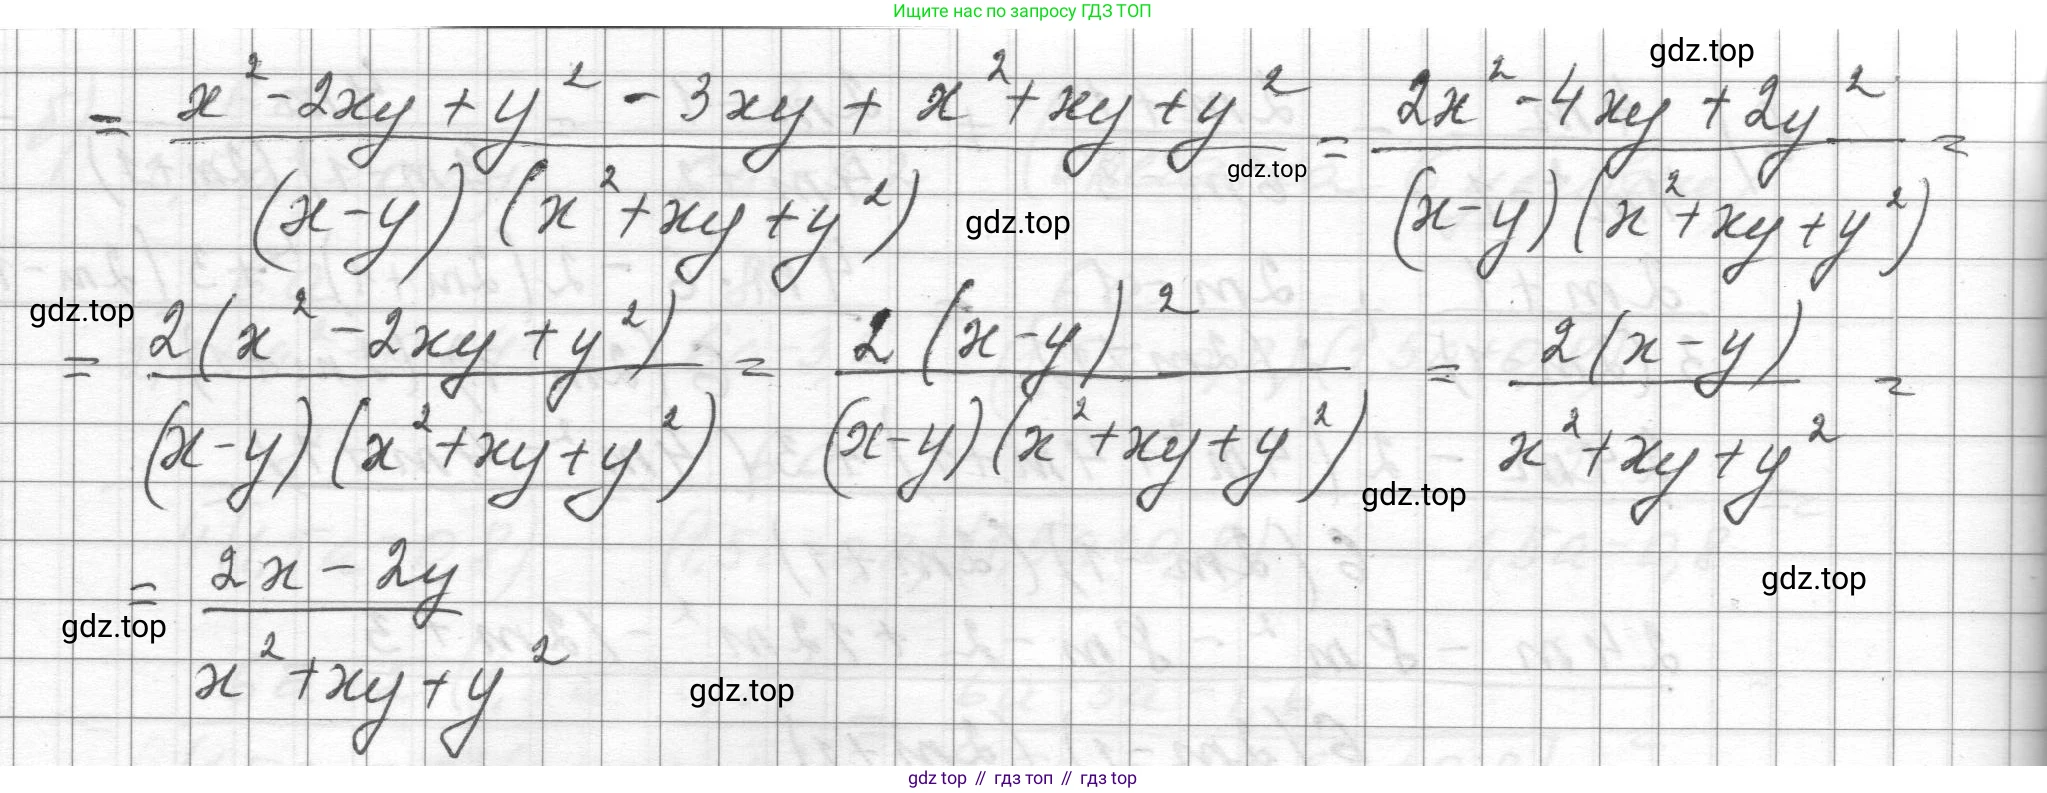 Ищите нас по запросу ГДЗ ТОП
gdz.top
= (x² - 2xy + y² - 3xy + x² + xy + y²) / ((x-y)(x² + xy + y²)) = (2x² - 4xy + 2y²) / ((x-y)(x² + xy + y²)) =
gdz.top
gdz.top
gdz.top
= 2(x² - 2xy + y²) / ((x-y)(x² + xy + y²)) = 2(x-y)² / ((x-y)(x² + xy + y²)) = 2(x-y) / (x² + xy + y²) =
gdz.top
gdz.top
= (2x - 2y) / (x² + xy + y²)
gdz.top
gdz.top
gdz top // гдз топ // gdz top